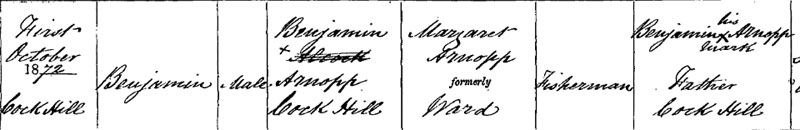 First
October
1872
Cock Hill
Benjamin
Male
Benjamin
+ Alcock
Arnopp
Cock Hill
Margaret
Arnopp
formerly
Ward
Fisherman
his
Benjamin x Arnopp
mark
Father
Cock Hill